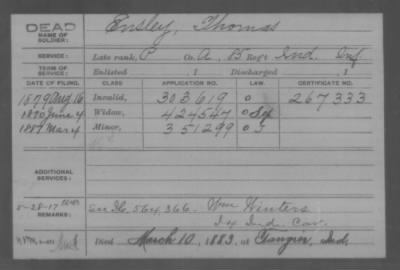 DEAD
NAME OF SOLDIER: Ensley, Thomas
SERVICE: Late rank, P Co. A, 85 Reg't Ind. Inf.
TERM OF SERVICE: Enlisted , 1 Discharged , 1
DATE OF FILING. CLASS APPLICATION NO. LAW. CERTIFICATE NO.
1879 Aug 16 Invalid, 303619 0 267333
1890 June 4 Widow, 424547
1887 Mar 4 Minor, 351299
ADDITIONAL SERVICES:
REMARKS: 564,366. Wm Winters
Ind. Cav.
Died March 10, 1883, at Ind.